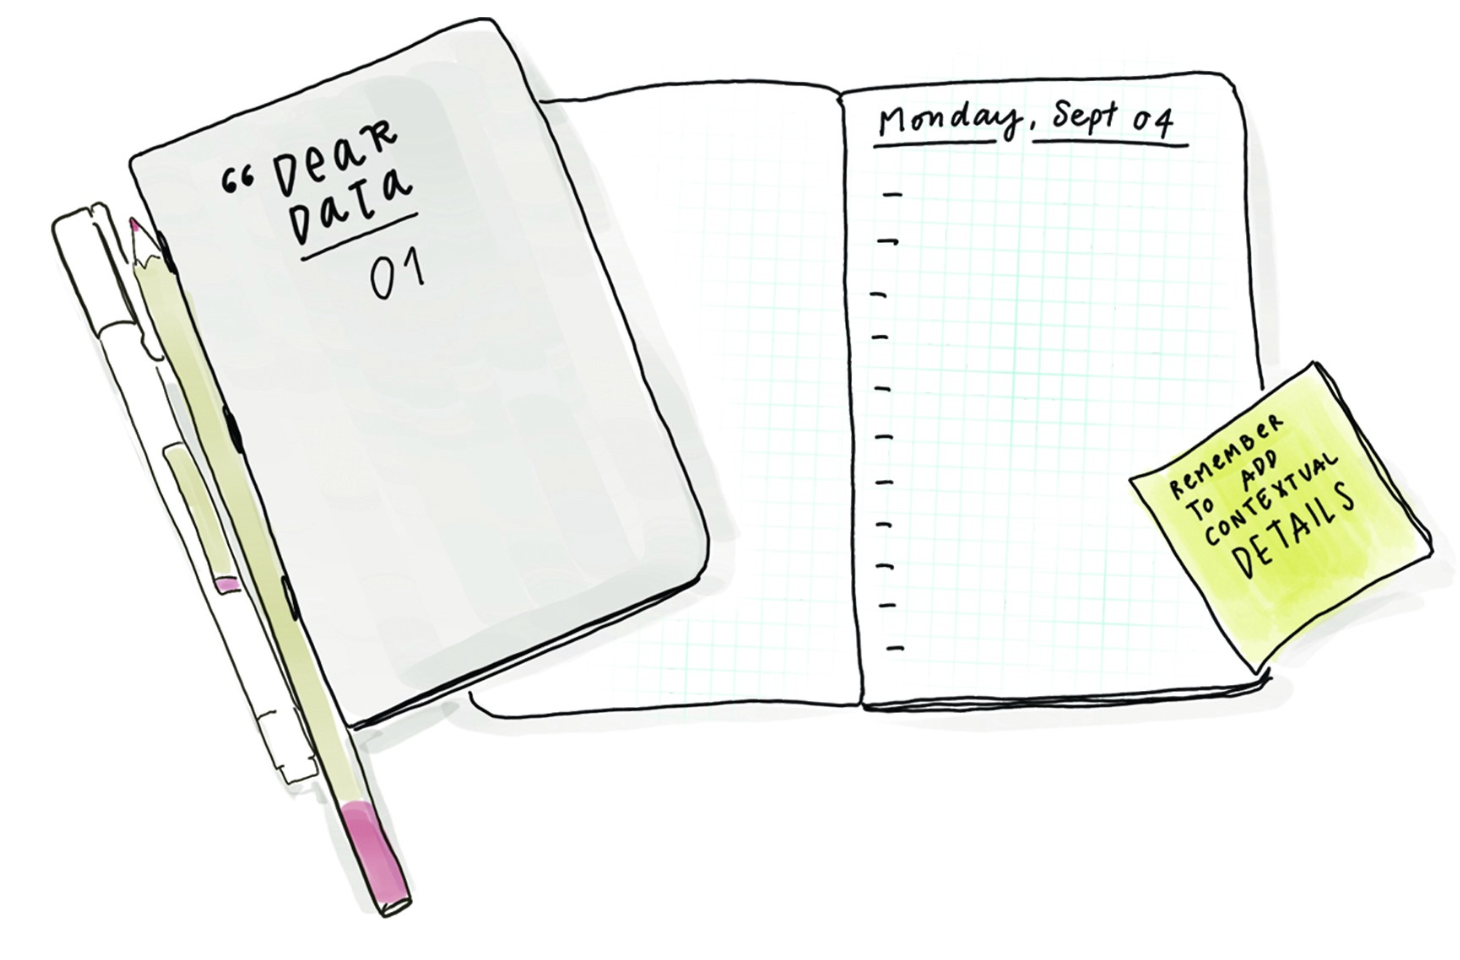 “ DeaR
Data
01
Monday, Sept 04
-
-
-
-
-
-
-
-
-
-
-
ReMeMBeR
To ADD
CONTEXTUAL
DETAILS